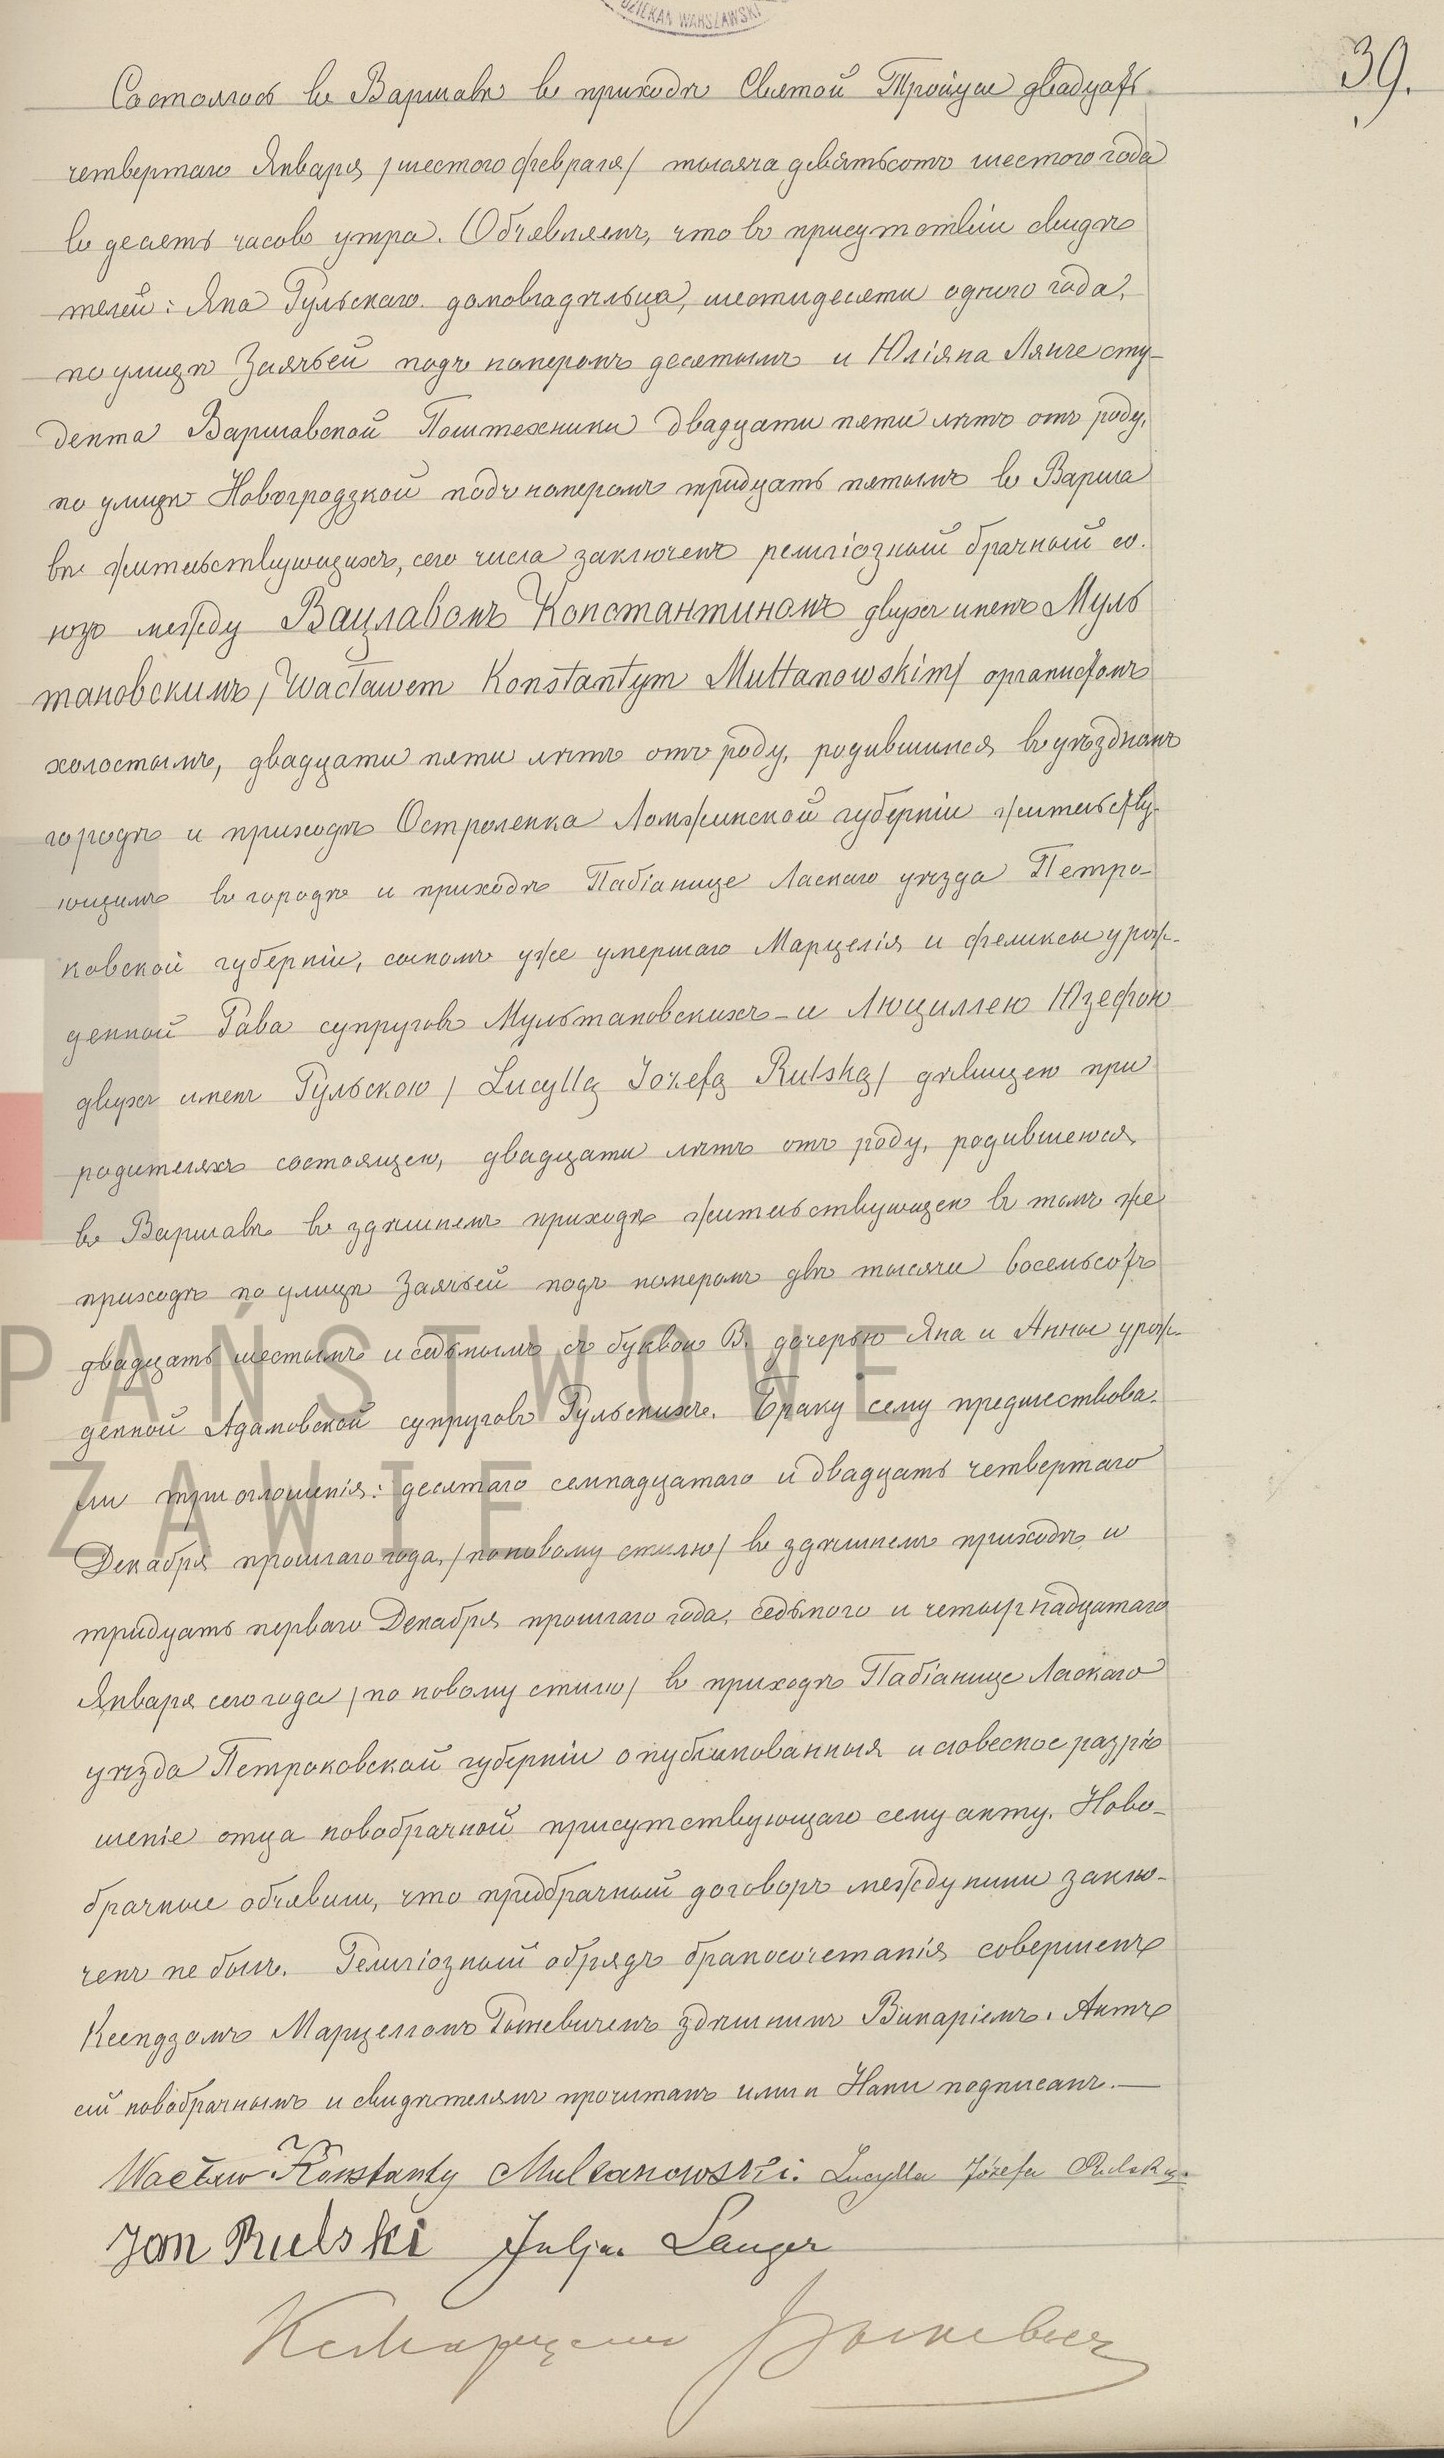 DZIEKAN WARSZAWSKI
39.
Состоялось въ Варшавѣ въ приходѣ Святой Троицы двадцать
четвертаго Января /шестого февраля/ тысяча девятьсотъ шестого года
въ десять часовъ утра. Объявляемъ, что въ присутствіи свидѣ
телей: Яна Рульскаго домовладѣльца, шестидесяти одного года,
по улицѣ Заячьей подъ номеромъ десятымъ и Юліяна Лянге сту-
дента Варшавской Политехники двадцати пяти лѣтъ отъ роду,
по улицѣ Новогродзкой подъ номеромъ тридцать пятымъ въ Варша
вѣ жительствующихъ, сего числа заключенъ религіозный брачный со.
юзъ между Вацлавомъ Константиномъ двухъ именъ Муль
тановскимъ /Wacławem Konstantym Multanowskim/ органистомъ
холостымъ, двадцати пяти лѣтъ отъ роду, родившимся въ уѣздномъ
городѣ и приходѣ Остроленка Ломжинской губерніи жительству-
ющимъ въ городѣ и приходѣ Пабіанице Ласкаго уѣзда Петро-
ковской губерніи, сыномъ уже умершаго Марцелія и Феликсы урож-
денной Гава супруговъ Мультановскихъ - и Люциллею Юзефою
двухъ именъ Рульскою /Lucyllą Józefą Rulską/ дѣвицею при
родителяхъ состоящею, двадцати лѣтъ отъ роду, родившеюся
въ Варшавѣ въ здѣшнемъ приходѣ жительствующею въ томъ же
приходѣ по улицѣ Заячьей подъ номеромъ двѣ тысячи восемьсотъ
двадцать шестымъ и седьмымъ съ буквою В. дочерью Яна и Анны урож-
денной Адамовской супруговъ Рульскихъ. Браку сему предшествова-
ли три оглошенія: десятаго семнадцатаго и двадцать четвертаго
Декабря прошлаго года, /по новому стилю/ въ здѣшнемъ приходѣ и
тридцать перваго Декабря прошлаго года, седьмого и четырнадцатаго
Января сего года /по новому стилю/ въ приходѣ Пабіанице Ласкаго
уѣзда Петроковской губерніи опубликованныя и словесное разрѣ
шеніе отца новобрачной присутствующаго сему акту. Ново-
брачные объявили, что предбрачный договоръ между ними заклю-
ченъ не былъ. Религіозный обрядъ бракосочетанія совершенъ
Ксендзомъ здѣшнимъ Викаріемъ. Актъ
сей новобрачнымъ и свидѣтелямъ прочитанъ ими и Нами подписанъ.—
Wacław Konstanty Multanowski. Lucylla Józefa Rulska.
Jan Rulski Juljan Langer
PAŃSTWOWE
ZAWIE